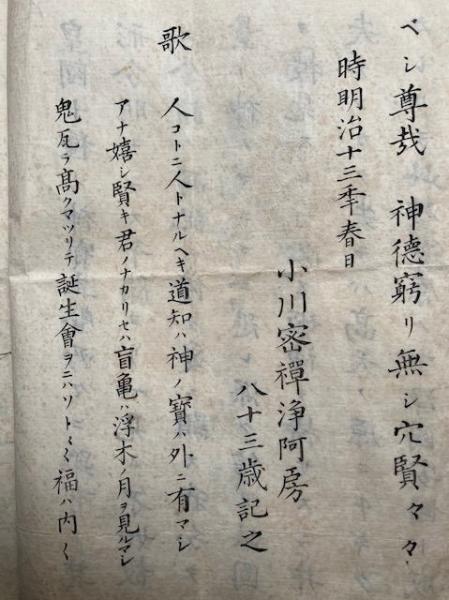 ベシ尊哉 神德窮リ無シ穴賢々々
時明治十三季春日
小川密禪浄阿房
八十三歳記之
歌 人コトニ人トナルヘキ道知ハ神ノ寶ハ外ニ有マシ
アナ嬉シ賢キ君ノナカリセハ盲亀ハ浮木ノ月ヲ見ルマシ
鬼瓦ヲ髙クマツリテ誕生會ヲニハソト〱福ハ内〱